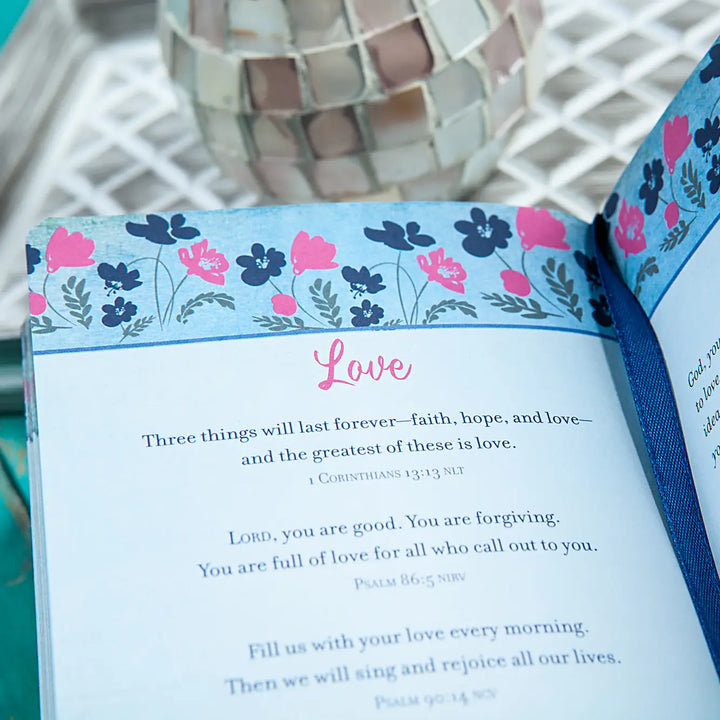 Love
Three things will last forever—faith, hope, and love—
and the greatest of these is love.
1 Corinthians 13:13 NLT
Lord, you are good. You are forgiving.
You are full of love for all who call out to you.
Psalm 86:5 NIRV
Fill us with your love every morning.
Then we will sing and rejoice all our lives.
Psalm 90:14 NCV
God, you
to love
idea
yo